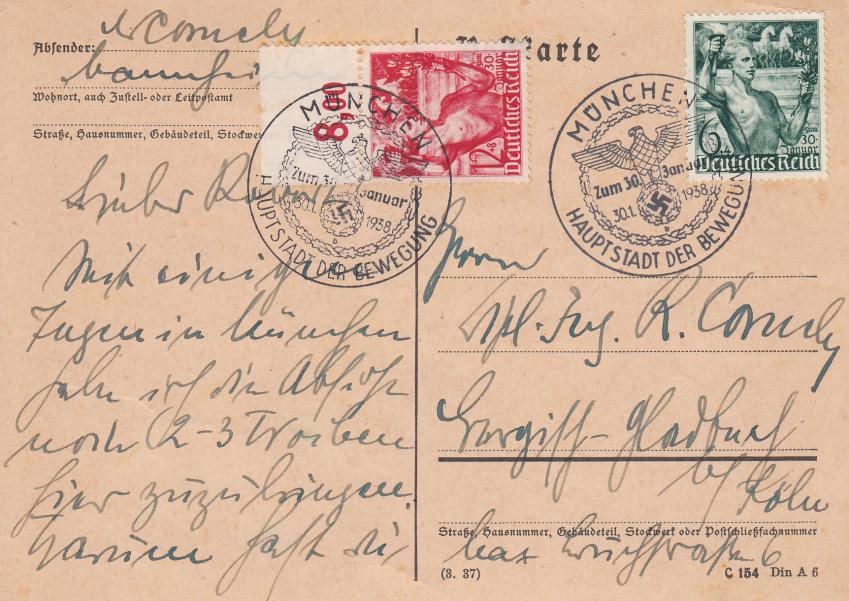 Absender: Cornely
Mannheim
Wohnort, auch Zustell- oder Leitpostamt
Straße, Hausnummer, Gebäudeteil, Stockwer
Lieber
Mit einigen
Tagen in München
habe ich die Absicht
noch 2-3 Wochen
hier zuzubringen.
Warum hast du
karte
8,00
12
30
Januar
Deutsches Reich
MÜNCHEN
Zum 30. Januar
30.1. 1938
b
HAUPTSTADT DER BEWEGUNG
6
zum
30
Januar
Deutsches Reich
MÜNCHEN
Zum 30. Januar
30.1. 1938
b
HAUPTSTADT DER BEWEGUNG
Herrn
Dipl.-Ing. R. Cornely
Bergisch-Gladbach
b/ Köln
Straße, Hausnummer, Gebäudeteil, Stockwerk oder Postschließfachnummer
6
(3. 37)
C 154 Din A 6